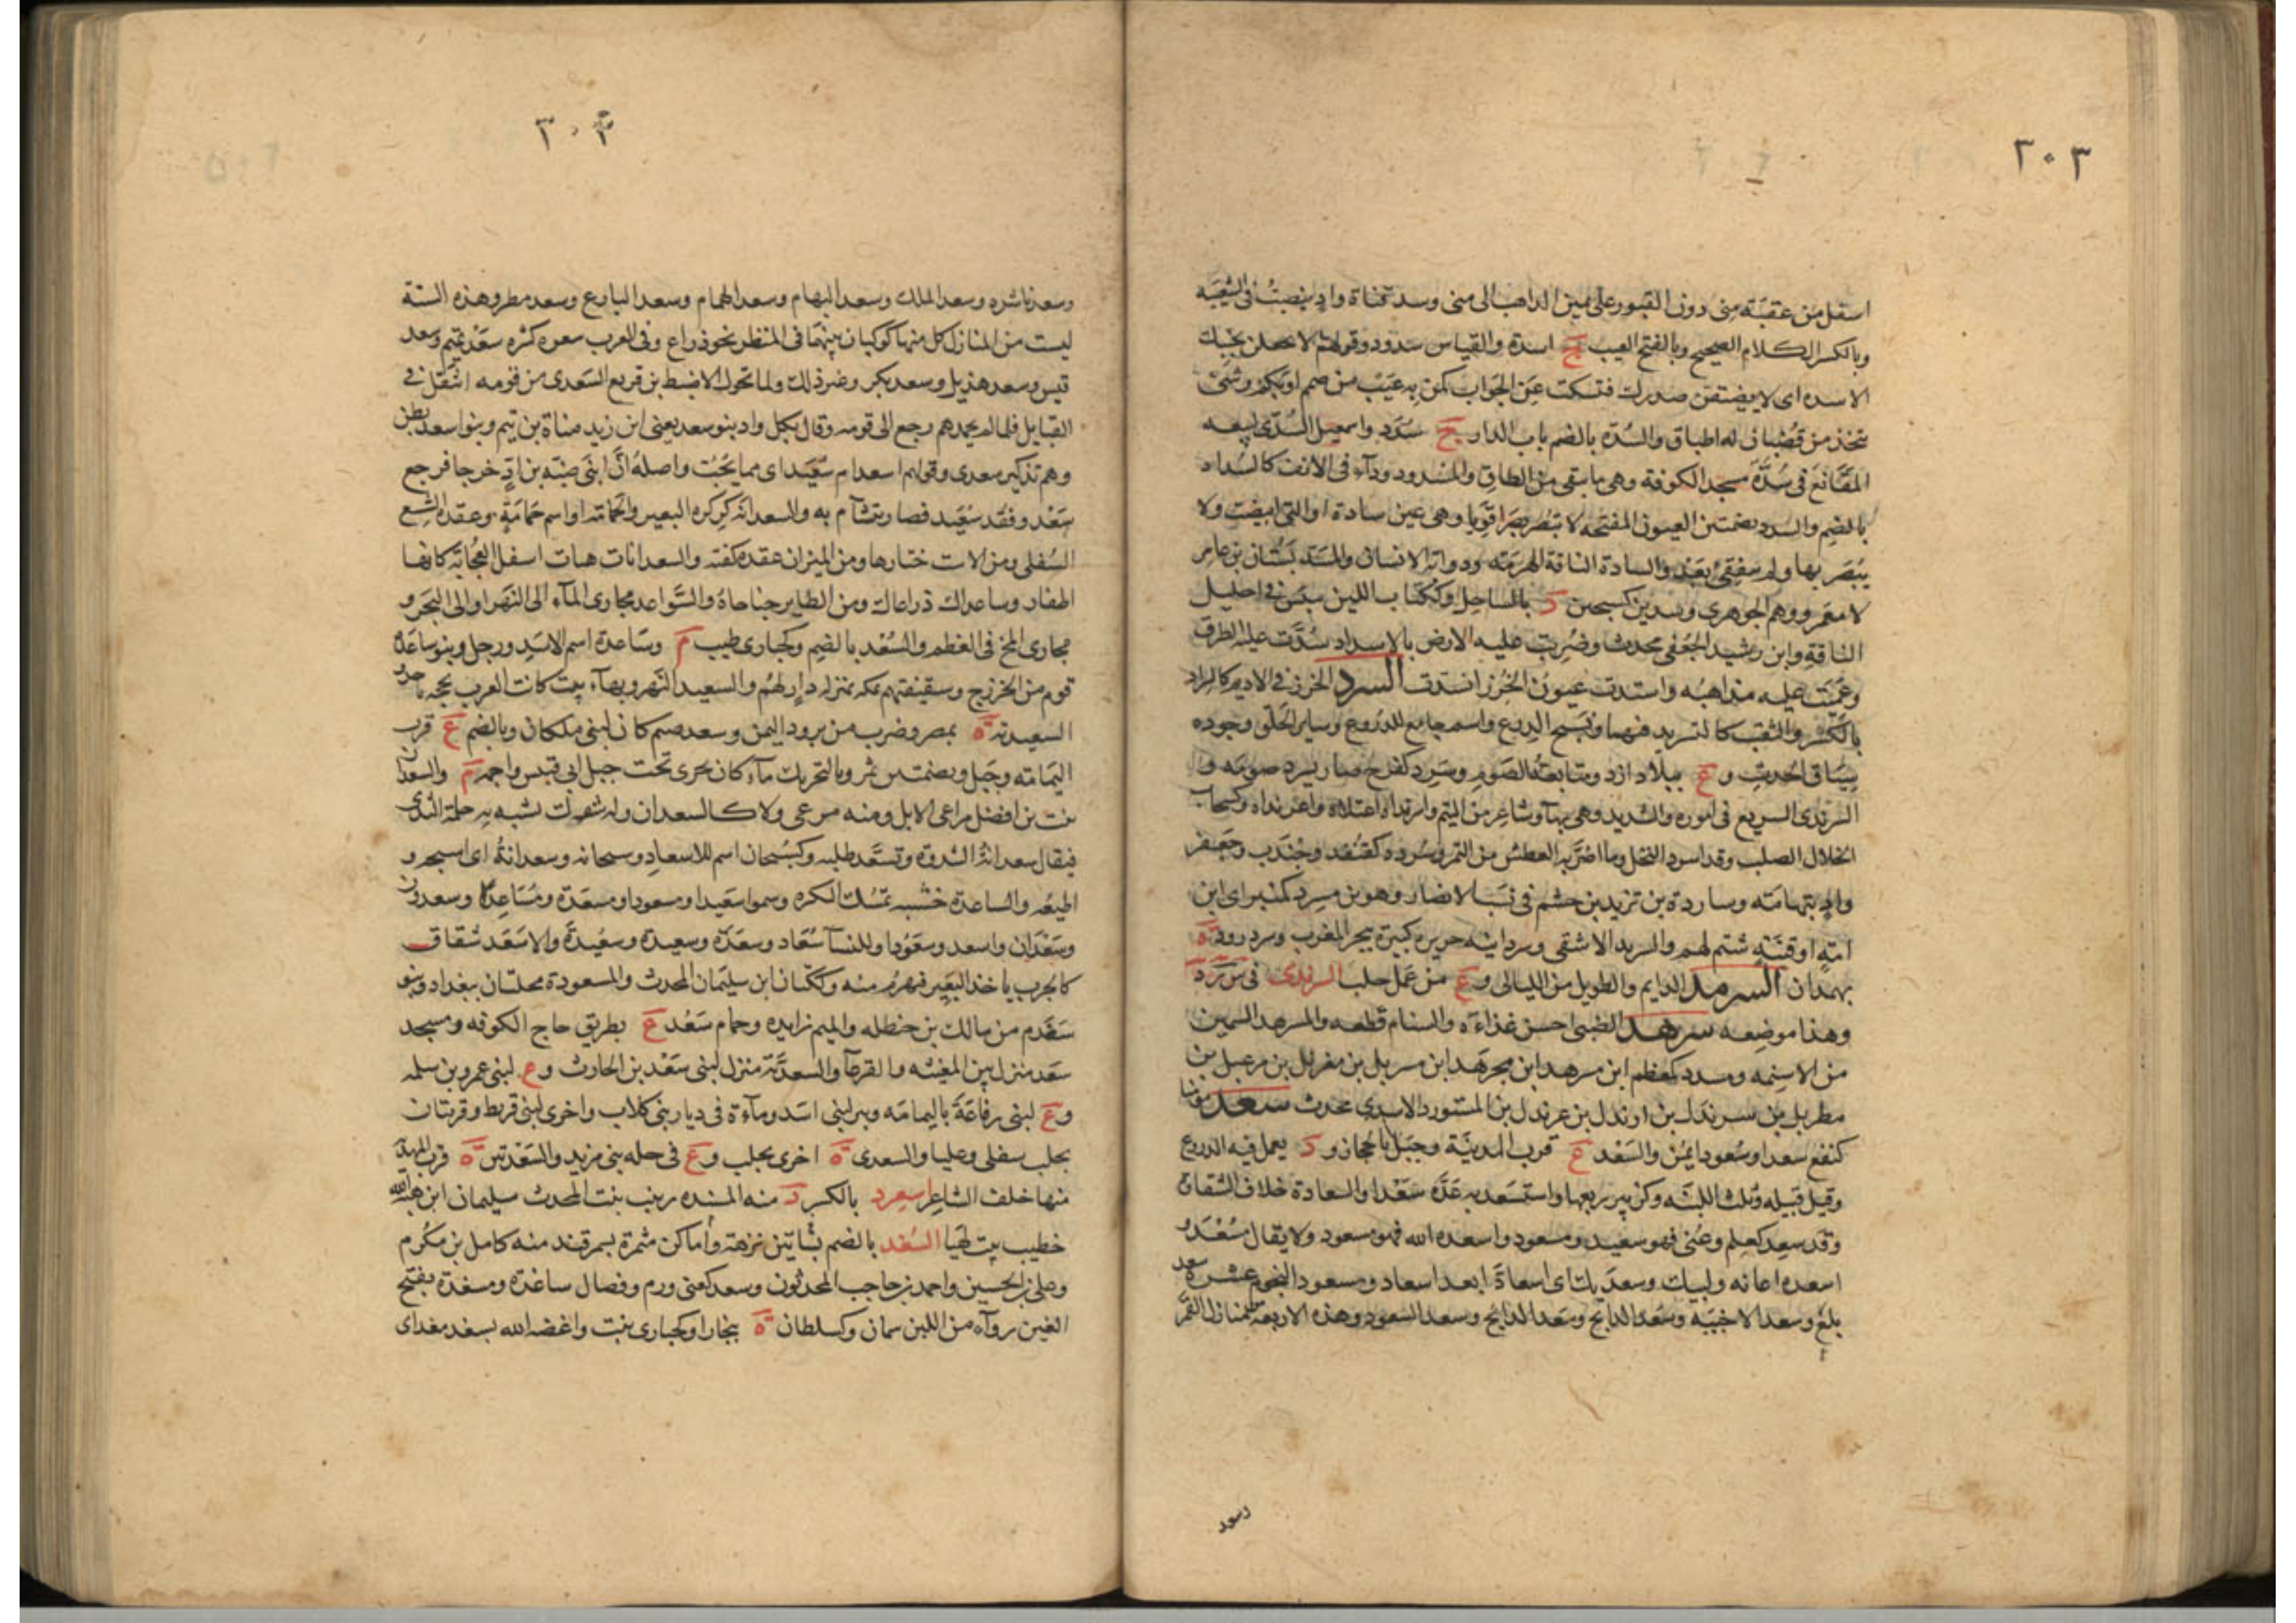 ٣٠٣
اسفل من عقبة منى دون القبور على يمين الذاهب الى منى وسد قناة واد ينصب في الشعيبه
وبالكسر الكلام الصحيح وبالفتح العيب ج اسدة والقياس سدود وقولهم لا تجعلن بجنبك
الاسده اى لا يضيقن صدرك فتسكت عن الجواب كمن به عيب من صمم او بكم وشئ
يتخذ من قضبان له اطباق والسدة بالضم باب الدار ج سدد واسمعيل السدى لبيعه
المقانع في سدة مسجد الكوفة وهى ما يبقى من الطاق المسدود وداء في الانف كالسداد
بالضم والسدد بضمتين العيون المفتحه لا تبصر بصرا قويا وهى عين سادة او التى ابيضت ولا
يبصر بها ولم تنفقئ بعد والسادة الناقة الهرمة وذوابة الانسان والمسد بستان بن عامر
لا معمر ووهم الجوهرى وسدين كسجين د بالساحل وككتاب اللبن ييبس في احليل
الناقة وابن رشيد الجعفى محدث وضربت عليه الارض بالاسداد سدت عليه الطرق
وعميت عليه مذاهبه واستدت عيون الخرز انسدت السرد الخرز في الاديم كالسراد
بالكسر والثقب كالتسريد فيهما ونسج الدرع واسم جامع للدروع وساير الحلق وجوده
سياق الحديث و ع ببلاد ازد ومتابعة الصوم وسرد كفرح صار يسرد صومه و
السرندى السريع في اموره والشديد وهى بهآ وشاعر من التيم واسرنداه اعتلاه واغرنداه وكسحاب
الخلال الصلب وقد اسرد النخل وما اضر به العطش من التمر وسردد كقنفد وجندب وجعفر
واد بتهامة وساردة بن تزيد بن جشم في نسب الانصار وهو بن مسرد كمنبر اى ابن
امة او قينة شتم لهم والسريد الاشفى وسردانيه جزيرة كبيرة ببحر المغرب وسردرود ة
بهمدان السرمد الدايم والطويل من الليالى و ع من عمل حلب السرندى في س ر د
وهذا موضعه سرهد الصبى احسن غذاءه والسنام قطعه والمسرهد السمين
من الاسنمه ومسدد كمعظم ابن مسرهد ابن مجرهد ابن مسربل بن مغربل بن مرعبل بن
مطربل بن سرندل بن ارندل بن عرندل بن المستورد الاسدى محدث سعد يومنا
كنفع سعدا وسعودا يمن والسعد ع قرب المدينة وجبل بالحجاز و د يعمل فيه الدروع
وقيل قبيله وثلث اللبنه وكزبير ربعها واستسعد به عده سعدا والسعادة خلاف الشقاق
وقد سعد كعلم وعنى فهو سعيد ومسعود واسعده الله فهو مسعود ولا يقال مسعد و
اسعده اعانه ولبيك وسعديك اى اسعادا بعد اسعاد وسعود النجوم عشرة سعد
بلع وسعد الاخبيه وسعد الذابح وسعد الذابح وسعد السعود وهذه الاربعة منازل القمر
وسعد
٣٠٤
وسعد ناشره وسعد الملك وسعد البهام وسعد الهمام وسعد البارع وسعد مطر وهذه الستة
ليست من المنازل كل منها كوكبان بينهما في المنظر نحو ذراع وفى العرب سعود كثيره سعد تميم وسعد
قيس وسعد هذيل وسعد بكر وغير ذلك ولما تحول الاضبط بن قريع السعدى من قومه انتقل في
القبايل فلما لم يحمدهم رجع الى قومه وقال بكل واد بنو سعد يعنى ابن زيد مناة بن تيم وبنو اسعد بطن
وهم تذكير سعدى وقولهم اسعد ام سعيد اى مما يحب واصله ان ابنى ضبه بن اد خرجا فرجع
سعد وفقد سعيد فصار يتشآم به والسعدانة كركره البعير والحمامة او اسم حمامة وعقدة الشسع
السفلى ومن الاست ختارها ومن الميزان عقده كفته والسعدانات هنات اسفل العجاية كانها
اظفار وساعداك ذراعاك ومن الطاير جناحاه والسواعد مجارى المآء الى النهر او الى البحر و
مجارى المخ في العظم والسعد بالضم وكحبارى طيب م وساعدة اسم الاسد ورجل وبنو ساعدة
قوم من الخزرج وسقيفتهم بمكه بمنزله دار لهم والسعيد النهر وبهآء بيت كانت العرب تحجه باحد
السعيديه ة بمصر وضرب من برود اليمن وسعد صنم كان لبنى ملكان وبالضم ع قرب
اليمامه وجبل وبضمتين ثمر وبالتحريك مآء كان يجرى تحت جبل ابى قبيس واجمه م والسعدان
نبت من افضل مراعى الابل ومنه مرعى ولا كالسعدان وله شوك تشبه به حلمة الثدى
فيقال سعدانة الثندوة وتسعد طلبه وكسبحان اسم للاسعاد وسبحانه وسعدانه اى اسبحه و
اطيعه والساعدة خشبه تمسك البكره وسموا سعيدا ومسعودا ومسعدة ومساعدا وسعدون
وسعدان واسعد وسعودا وللنسآ سعاد وسعدة وسعيدة وسعيدة والاسعد شقاق
كالجرب ياخذ البعير فيهرم منه وككتان ابن سليمان المحدث والمسعودة محلتان ببغداد وبنو
سعدم من مالك بن حنظله والميم زايده وحمام سعد ع بطريق حاج الكوفه ومسجد
سعد منزل بين المغيثه والقرعآ والسعدية منزل لبنى سعد بن الحارث و ع لبنى عمرو بن سلمه
و ع لبنى رفاعة باليمامه وبير لبنى اسد ومآءة في ديار بنى كلاب واخرى لبنى قريط وقريتان
بحلب سفلى وعليا والسعدى ة اخرى بحلب و ع في حله بنى مزيد والسعدتين ة قرب المهدية
منها خلف الشاعر اسعرد بالكسر د منه المسنده زينب بنت المحدث سليمان ابن هبة الله
خطيب بيت لهيا السغد بالضم بساتين نزهة وأماكن مثمرة بسمرقند منه كامل بن مكرم
وعلى بن الحسين واحمد بن حاجب المحدثون وسغد كعنى ورم وفصال ساغدة ومسغدة بفتح
الغين رواء من اللبن سمان وكسلطان ة ببخارا وكحبارى نبت واغضه الله بسغد مغداى